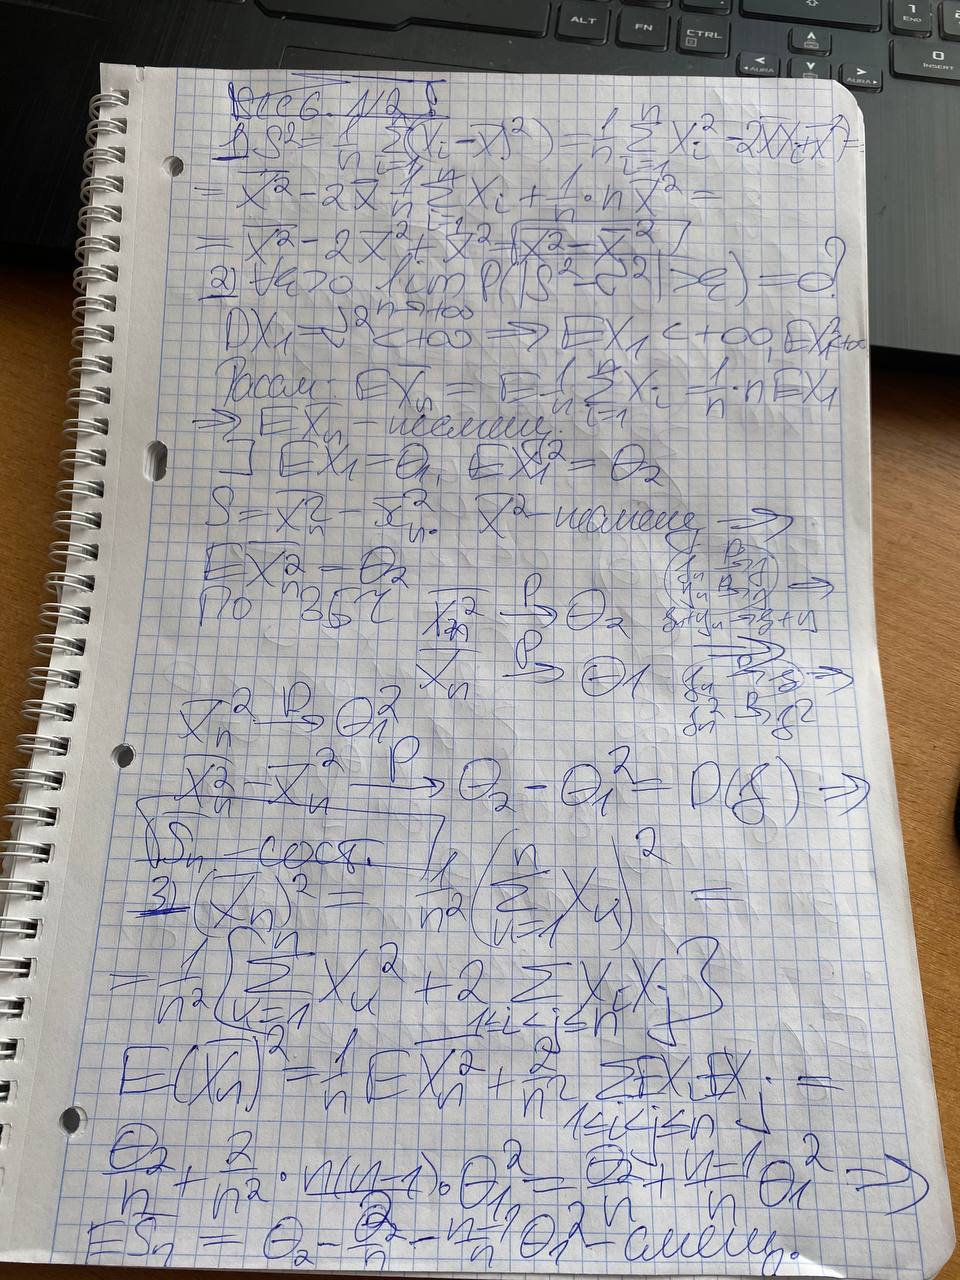 ALT
FN
CTRL
AURA
AURA
1
END
0
INSERT
1) S² = 1/n ∑_{i=1}^{n} (Xi - X̄)² = 1/n ∑_{i=1}^{n} Xi² - 2X̄Xi + X̄²) =
= \overline{X²} - 2X̄ 1/n ∑_{i=1}^{n} Xi + 1/n · n X̄² =
= \overline{X²} - 2X̄² + X̄² = \overline{X²} - X̄²
2) ∀ε>0 lim_{n→+∞} P(|S² - σ²| > ε) = 0?
DX₁ = σ² < +∞ ⇒ EX₁ < +∞, EX₁² < +∞
Рассм: EX̄n = E 1/n ∑_{i=1}^{n} Xi = 1/n · n EX₁
⇒ EX̄n - несмещ.
] EX₁ = θ₁, EX₁² = θ₂
S = \overline{X²n} - x̄n². \overline{X²} - несмещ ⇒
E\overline{X²n} = θ₂
По ЗБЧ \overline{X²n} →^P θ₂
X̄n →^P θ₁
X̄n² →^P θ₁²
\overline{X²n} - X̄n² →^P θ₂ - θ₁² = D(ξ) ⇒
Sn - сост.
3) (X̄n)² = 1/n² (∑_{k=1}^{n} Xk)² =
= 1/n² {∑_{k=1}^{n} Xk² + 2 ∑_{1≤i<j≤n} XiXj}
E(X̄n)² = 1/n E\overline{X²n} + 2/n² ∑_{1≤i<j≤n} EXi EXj =
θ₂/n + 2/n² · n(n-1) · θ₁² = θ₂/n + n-1/n θ₁² ⇒
ESn = θ₂ - θ₂/n - n-1/n θ₁² - смещ.